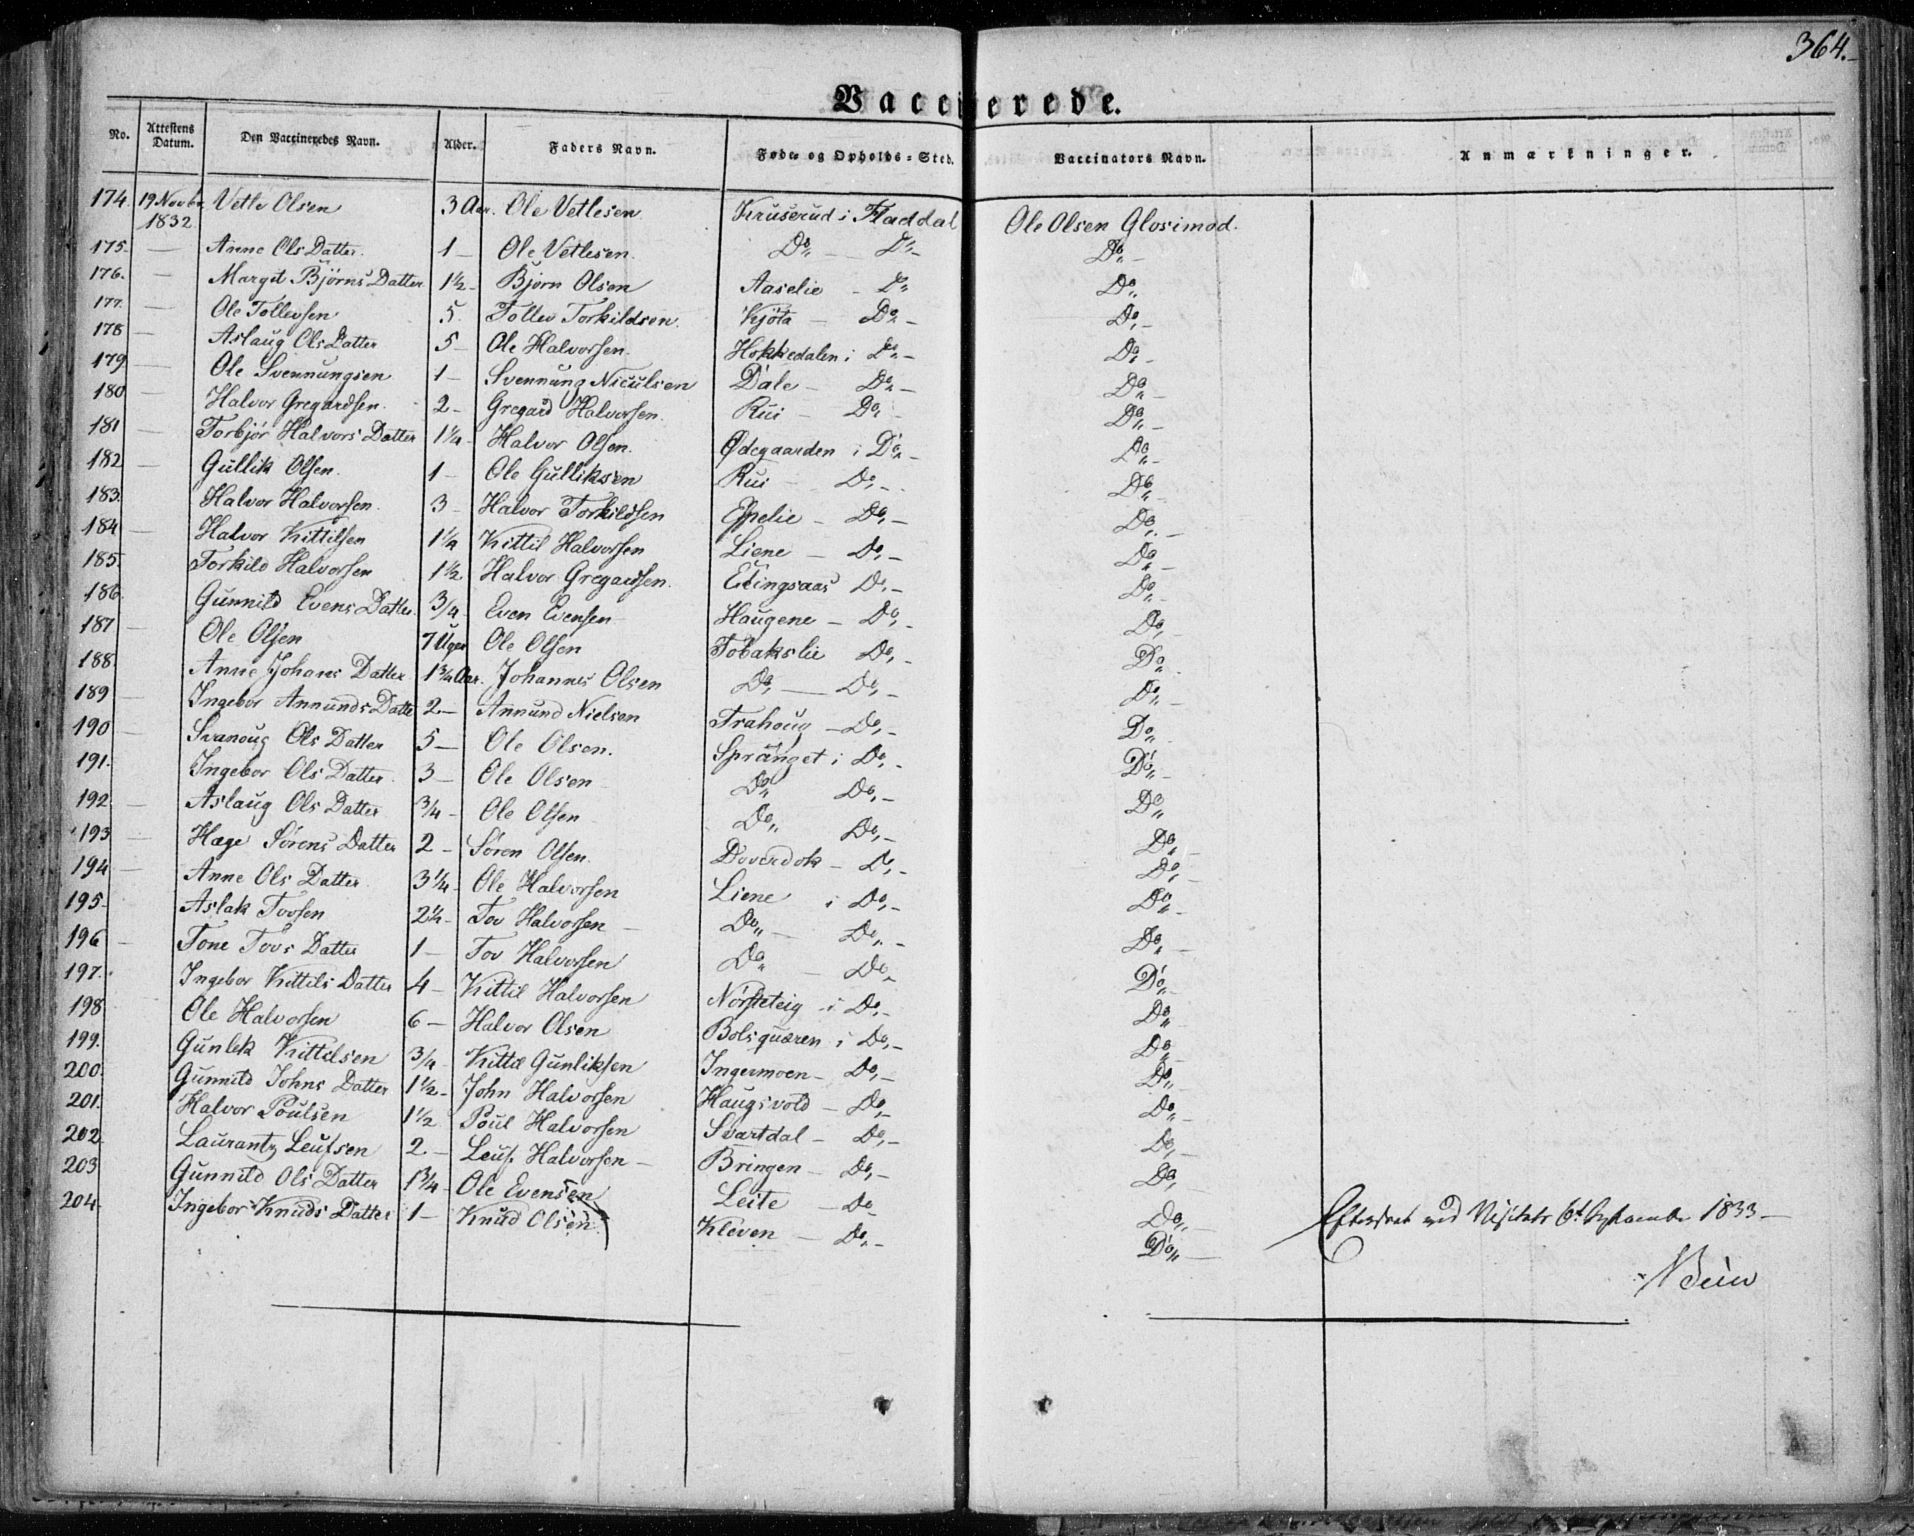 364.
Vaccinerede.
No. Attestens Datum. Den Vaccineredes Navn. Alder. Faders Navn. Føde- og Opholds-Sted. Vaccinators Navn. Anmærkninger.
174. 19 Novbr. 1832. Vetle Olsen 3 Aar. Ole Vetlesen Kruserud i Fladdal Ole Olsen Glosimod.
175. — Anne Ols Datter 1 — Ole Vetlesen. Do — Do — Do —
176. — Margit Björns Datter 1½ — Bjorn Olsen Aaselie — Do Do
177. — Ole Tollevsen 5. Tollev Torkildsen. Kjöta — Do — Do —
178 — Aslaug Ols Datter 5 — Ole Halvorsen. Hokkedalen i Do — Do —
179 — Ole Svennungsen 1 — Svennung Niculsen Dale — Do — Do —
180 — Halvor Gregardsen. 2 — Gregard Halvorsen. Rui — Do Do —
181 — Torbjör Halvors Datter 1¼ — Halvor Olsen. Ødegaarden i Do — Do —
182 — Gullik Olsen. 1 — Ole Gulliksen Rui — Do — Do —
183. Halvor Halvorsen. 3 — Halvor Torkildsen Espelie — Do — Do —
184 — Halvor Kittilsen 1¼ Kittil Halvorsen Liene — Do — Do —
185. Torkild Halvorsen 1½ Halvor Gregardsen. Do — Do —
186. Gunnild Evens Datter. 3/4 Even Evensen Haugene — Do — Do —
187 — Ole Olsen 7 Uger Ole Olsen Tobakslie Do — Do
188. Anne Johans Datter 1¾ Aar. Johannes Olsen Do — Do — Do —
189 — Ingebor Annunds Datte 2 — Annund Nielsen Trahoug — Do — Do
190 — Svanoug Ols Datter 5 — Ole Olsen. Spranget i Do — Do —
191. Ingebor Ols Datter. 3 — Ole Olsen Do Do — Do
192 — Aslaug Ols Datter 3/4 — Ole Olsen Do Do — Do —
193 — Hæge Sørens Datter 2 — Sören Olsen. Doverdok — Do — Do —
194 — Anne Ols Datter. 3¼ — Ole Halvorsen Liene i Do — Do —
195 — Aslak Tovsen 2½ — Tov Halvorsen — Do — Do — Do —
196 — Tone Tovs Datter 1 — Tov Halvorsen Do — Do — Do —
197. Ingebor Kittils Datter 4 — Kittil Halvorsen Nörsteteig i Do — Do
198 Ole Halvorsen 6 — Halvor Olsen Bolsquæren i Do — Do —
199. Gunlek Kittilsen 3/4 Kittil Gunliksen Ingermoen — Do — Do
200 Gunnild Johns Datter 1½ — John Halvorsen Haugsvold — Do — Do —
201. Halvor Poulsen 1½ Poul Halvorsen Svartdal — Do — Do —
202. Laurantz Leufsen 2 — Leuf Halvorsen — Bringen — Do — Do
203 Gunnild Ols Datter 1¾ — Ole Evensen Leite — Do Do —
204. Ingebor Knuds Datter 1 — Knud Olsen Kleven — Do — Do —
Efterseet ved Visitats 6t September 1833 —